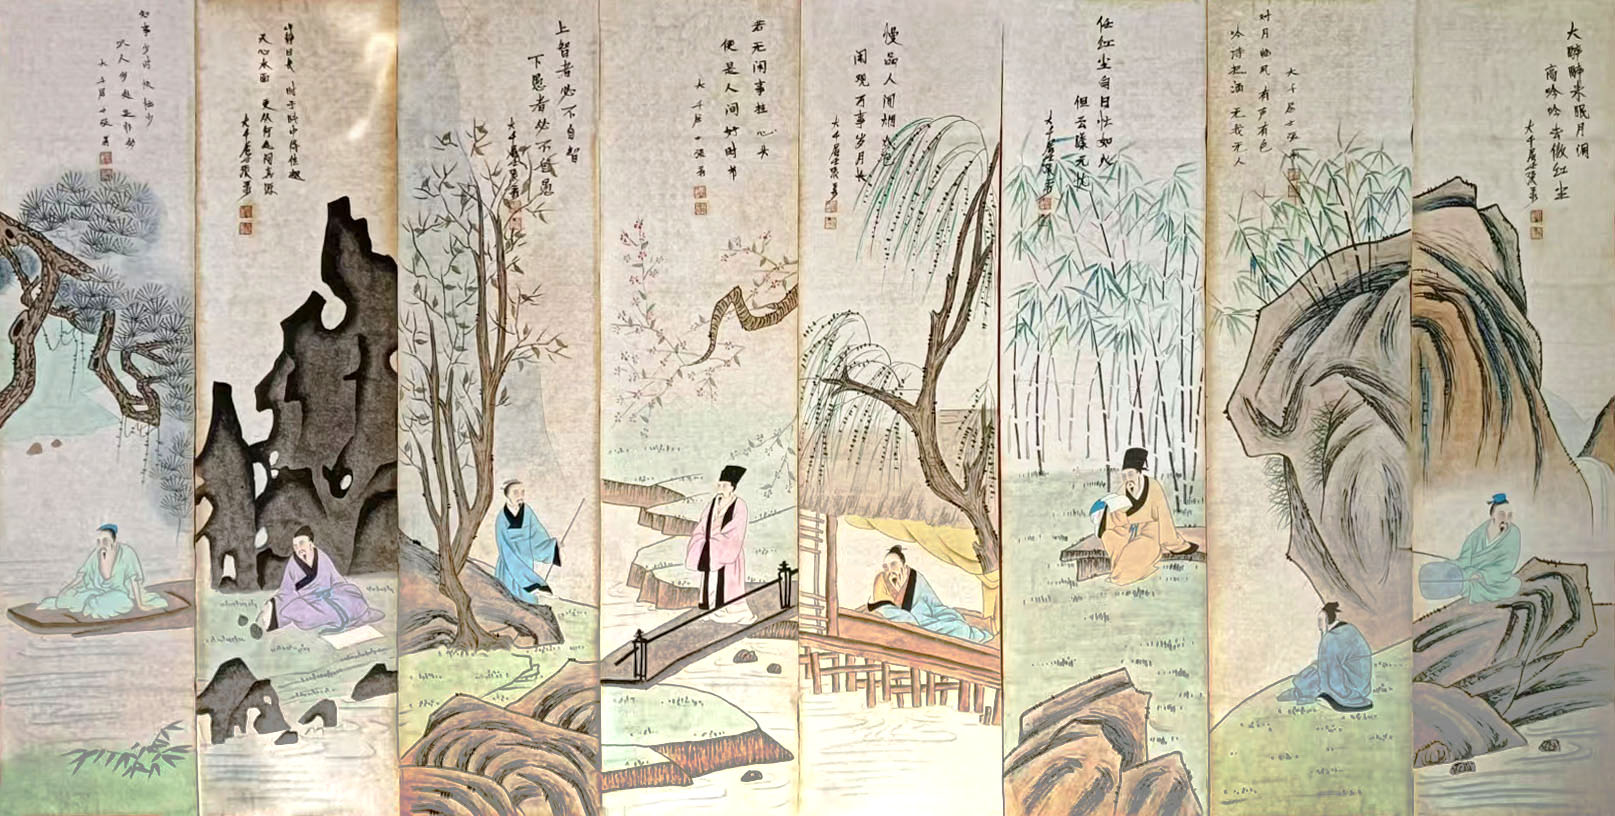 知事少时烦恼少
识人多处是非多
大千居士张爰
山静日长 时于此中得佳趣
天心水面 更从何处问真源
大千居士张爰
上智者必不自智
下愚者必不自愚
大千居士张爰
若无闲事挂心头
便是人间好时节
大千居士张爰
慢品人间烟火色
闲观万事岁月长
大千居士张爰
任红尘白日忙如火
但云溪无忧
大千居士张爰
对月临风 有声有色
吟诗把酒 无我无人
大千居士张
大醉醉来眠月洞
高吟吟去傲红尘
大千居士张爰